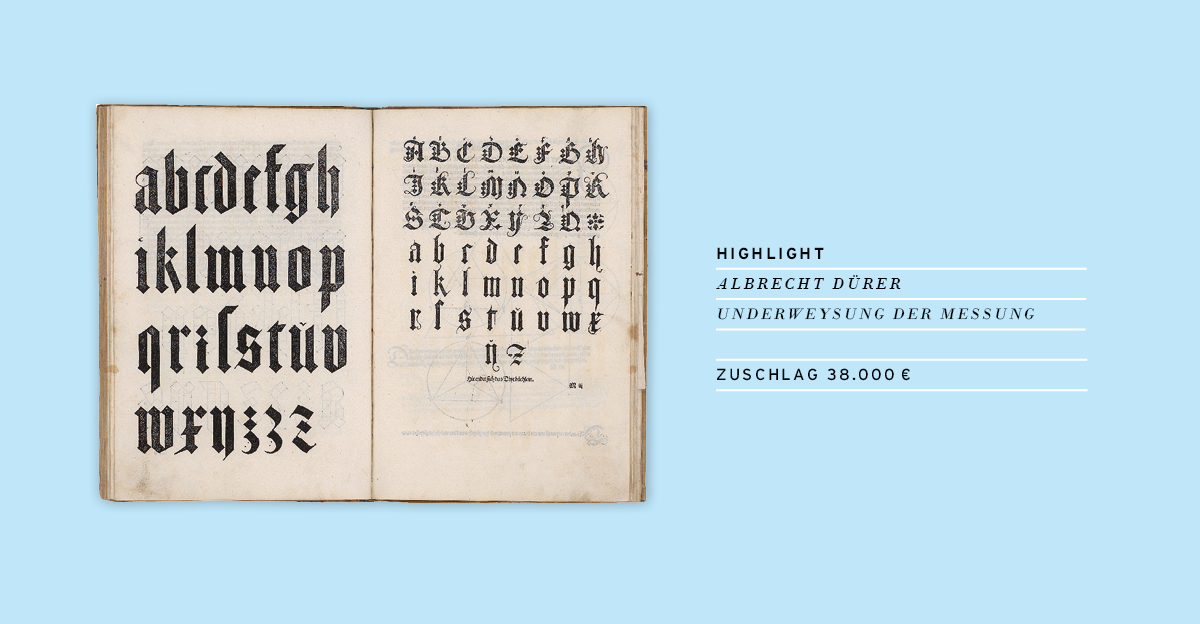 abcdefgh
iklmnop
qriſstuv
wxyzzz
A B C D E F G H
I K L M N O P R
S T V X Y Z Q
a b c d e f g h
i k l m n o p q
r ſ s t u v w x
y z
HIGHLIGHT
ALBRECHT DÜRER
UNDERWEYSUNG DER MESSUNG
ZUSCHLAG 38.000 €